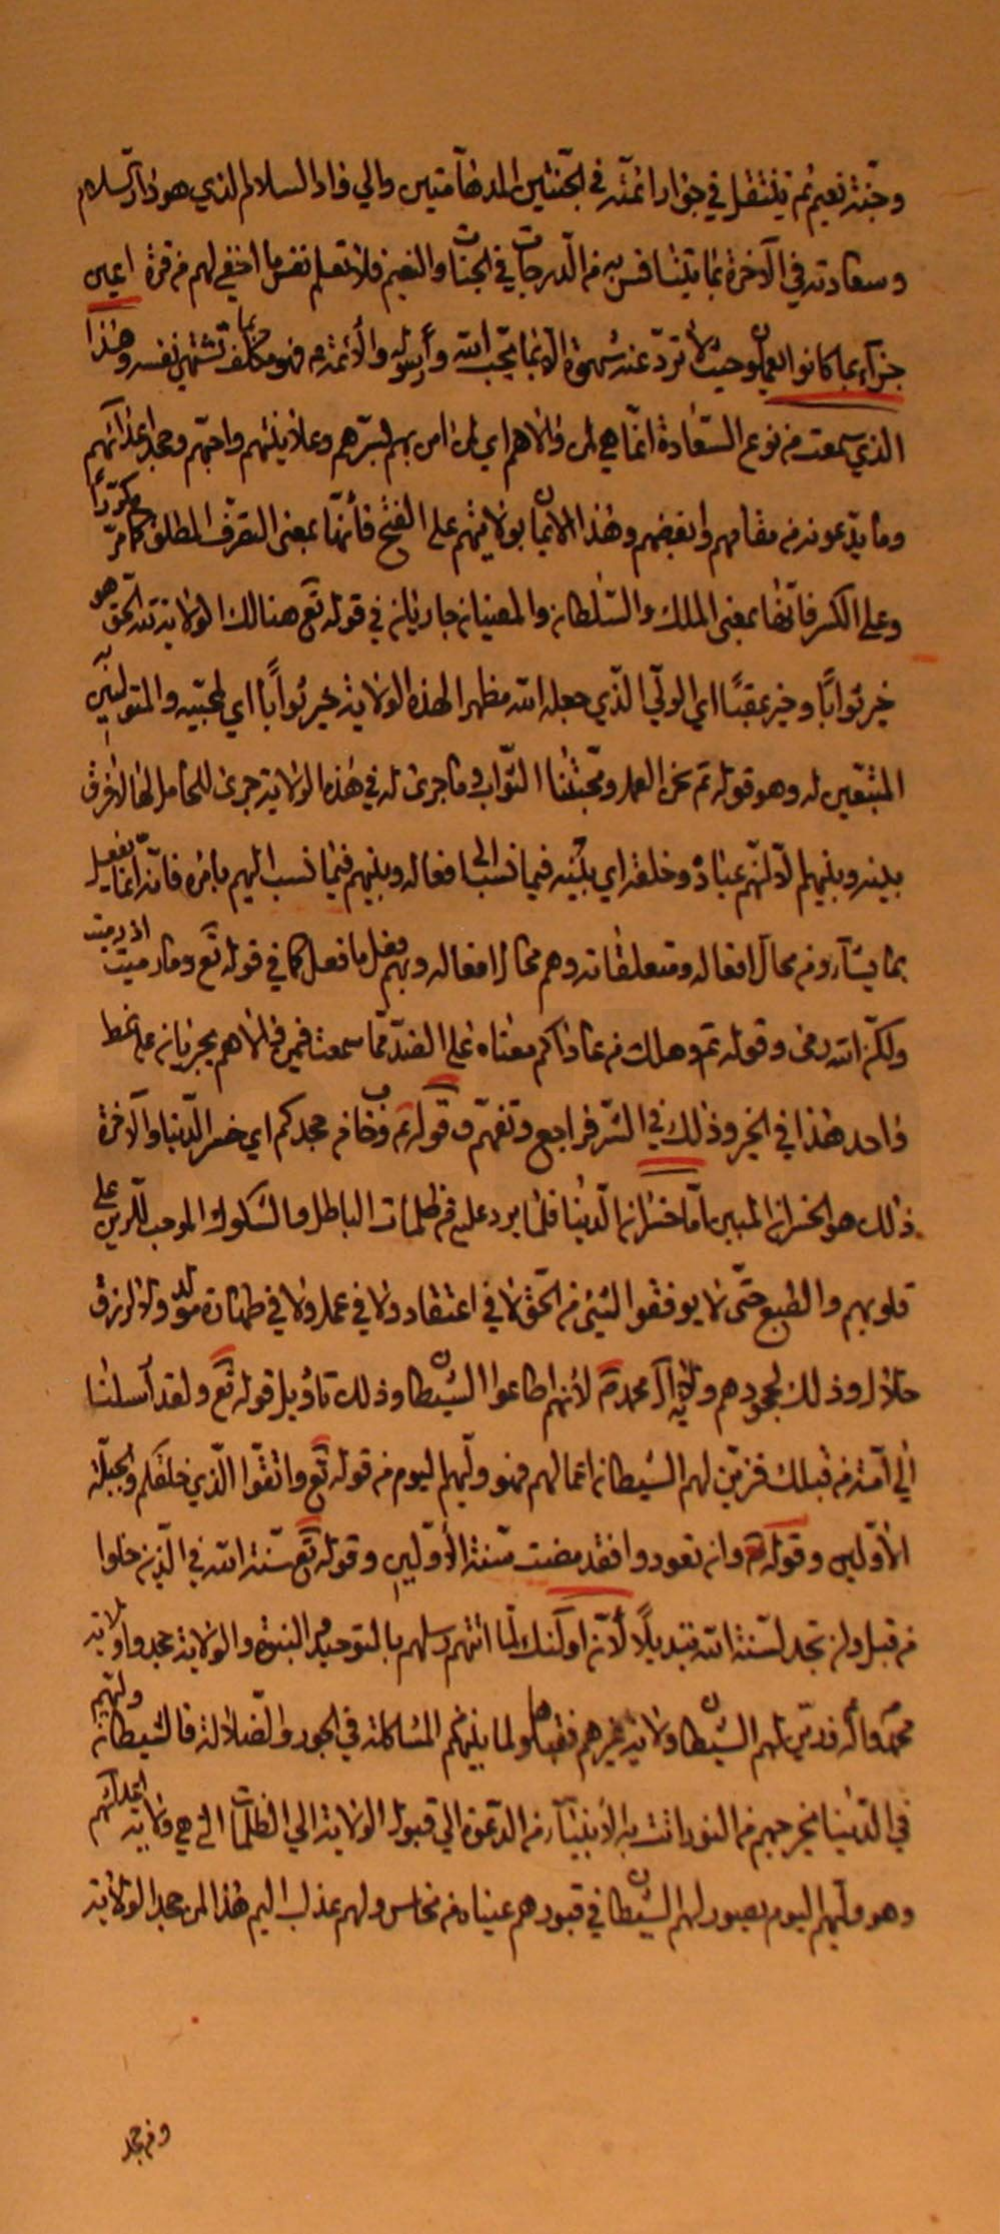 وجنّة نعيم ثم ينتقل في جوار ائمته في الجنتين المدهامتين والي دار السلام الذي هو دار السلام
وسعادته في الآخرة بما يتنافس فيه من الدرجات في الجنات والنعيم فلا تعلم نفس ما اخفي لهم من قرة اعين
جزآء بما كانوا يعملون وحيث لا تردّ عنه شهوة الا بما يحبّ الله ورسوله والأئمة م فهو مكلف بما تشتهي نفسه وهذا
الذي سمعت من نوع السّعادة انّما هي لمن والاهم اي لمن امن بهم لسرّهم وعلانيتهم واحبّهم وجحد اعدائهم
وما يدّعونه من مقامهم وابغضهم وهذا الايمان بولايتهم على الفتح فأنها بمعنى التصرّف المطلق كما مرّ مكررًا
وعلى الكسر فانها بمعنى الملك والسّلطان والمعنيان جاريان في قوله تع هنالك الولاية لله الحق هو
خير ثوابًا وخير عقبًا اي الولي الذّي جعله الله مظهرا لهذه الولاية خير ثوابًا اي لمحبّيه والمتولين به
المتبّعين له وهو قوله تم نحن العمل ومحبّتنا الثواب وما جرى له في هذه الولاية جرى للحامل لها لا فرق
بينه وبينهم الا انهم عبادُه وخلقه اي بينه فيما نسب الى افعاله وبينهم فيما نسب اليهم بامره فأنه انما يفعل
بما يشآء ومن محالّ افعاله ومتعلقاته وهم محالّ افعاله وبهم فعل ما فعل كما في قوله تع وما رميت اذ رميت
ولكنّ الله رمى وقوله تم وهلك من عاداكم معناه على الضدّ ممّا سمعت فيمن والاهم يجريان على نمط
واحد هذا في الخير وذلك في الشر فراجع وتفهّم وقوله تم وخاب من جحدكم اي خسر الدّنيا والآخرة
ذلك هو الخسران المبين امّا خسران الدّنيا فلما يرد عليه من ظلمات الباطل والشكوك الموجب للرّين على
قلوبهم والطبع حتّى لا يوفقوا لشئ من الحق لا في اعتقاد ولا في عمل ولا في طهارة مولد ولا لرزق
حلال وذلك لجحودهم ولاية آل محمد م لأنهم اطاعوا الشيطان وذلك تاويل قوله تع ولقد أرسلنا
الي امّة من قبلك فزيّن لهم الشيطان اعمالهم فهو وليّهم اليوم من قوله تع واتّقوا الّذي خلقكم والجبلّة
الأوّلين وقوله تع وان تعودوا فقد مضت سّنة الأوّلين وقوله تع سّنة الله في الذين خلوا
من قبل ولن تجد لسنة الله تبديلًا لأن اولئك لمّا اتتهم رسلهم بالتوحيد والنبوة والولاية جحدوا ولاية
محمد وآله فزيّن لهم الشيطان ولاية غيرهم فقبلوها لما بينهم المشاكلة في الجور والضّلالة فالشيطان وليّهم
في الدّنيا يخرجهم من النور اتت به الأنبيآء من الدّعوة الي قبول الولاية الي الظلمات التي هي ولاية اعدائهم
وهو وليّهم اليوم يصور لهم الشيطان في قبورهم عينان من نحاس ولهم عذاب اليم هذا لمن جحد الولاية
ومن جحد